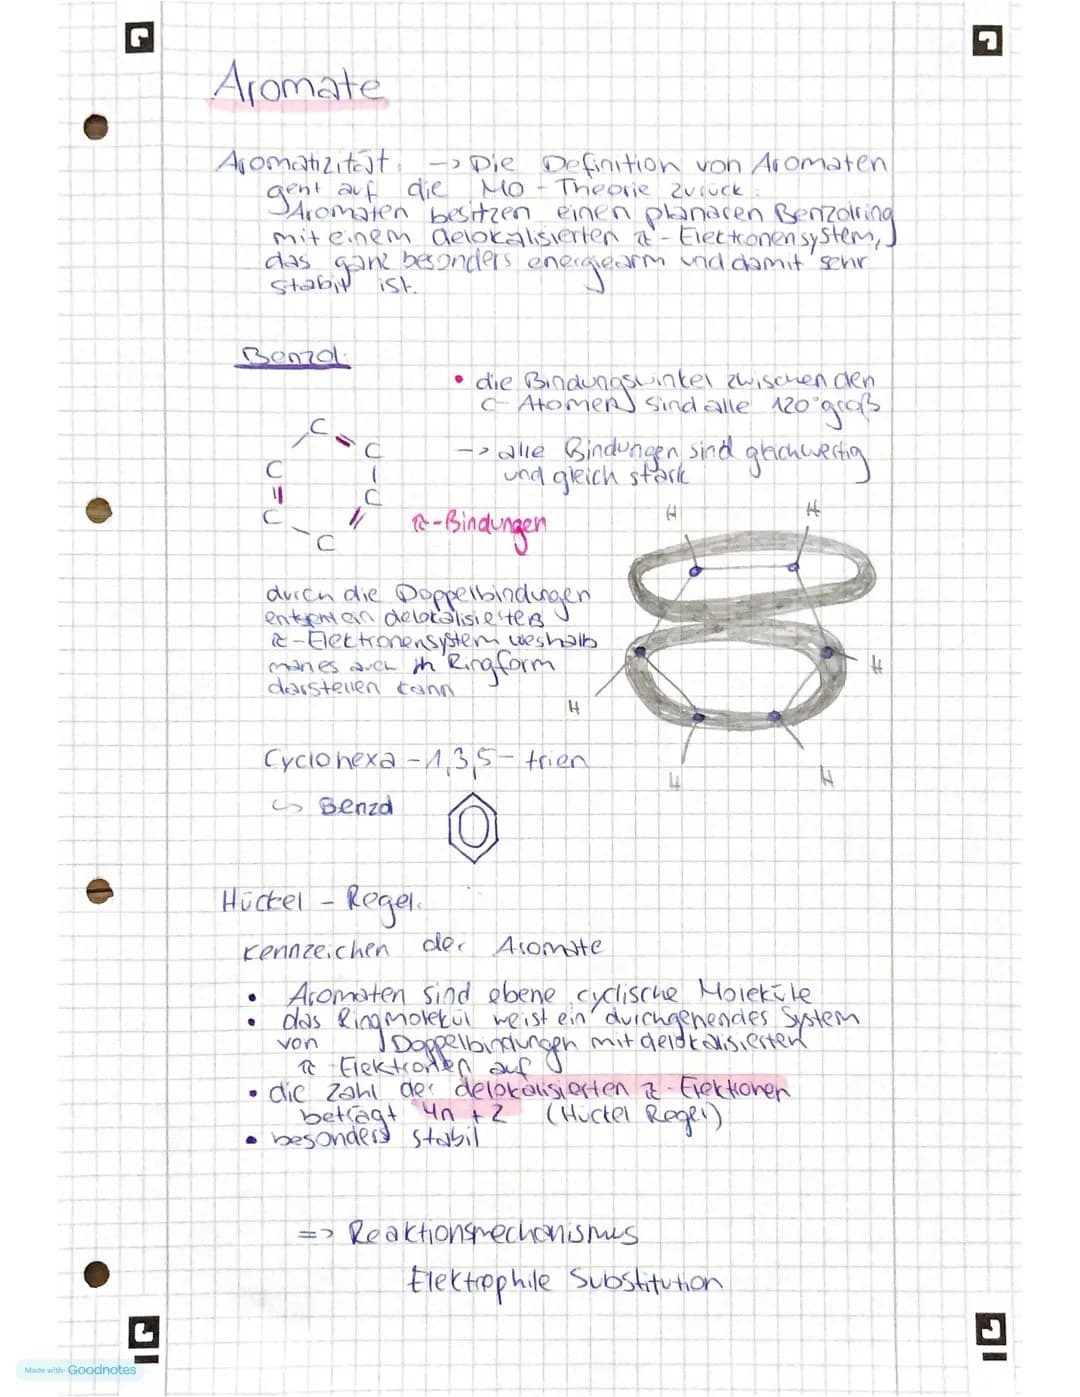 Aromate
Aromatizität: -> Die Definition von Aromaten
geht auf die MO - Theorie zurück.
Aromaten besitzen einen planaren Benzolring
mit einem delokalisierten π - Elektronensystem,
das ganz besonders energiearm und damit sehr
stabil ist.
Benzol:
• die Bindungswinkel zwischen den
C- Atomen sind alle 120° groß
-> alle Bindungen sind gleichwertig
und gleich stark
C
C
C
C
C
C
π-Bindungen
H
H
durch die Doppelbindungen
entsteht ein delokalisiertes
π-Elektronensystem weshalb
man es auch in Ringform
darstellen kann
H
H
H
H
Cyclohexa - 1,3,5 - trien
↳ Benzol
Hückel - Regel:
Kennzeichen der Aromate
• Aromaten sind ebene, cyclische Moleküle
• das Ringmolekül weist ein durchgehendes System
von Doppelbindungen mit delokalisierten
π - Elektronen auf
• die Zahl der delokalisierten π - Elektronen
beträgt 4n + 2 (Hückel Regel)
• besonders stabil
=> Reaktionsmechanismus
Elektrophile Substitution
Made with Goodnotes